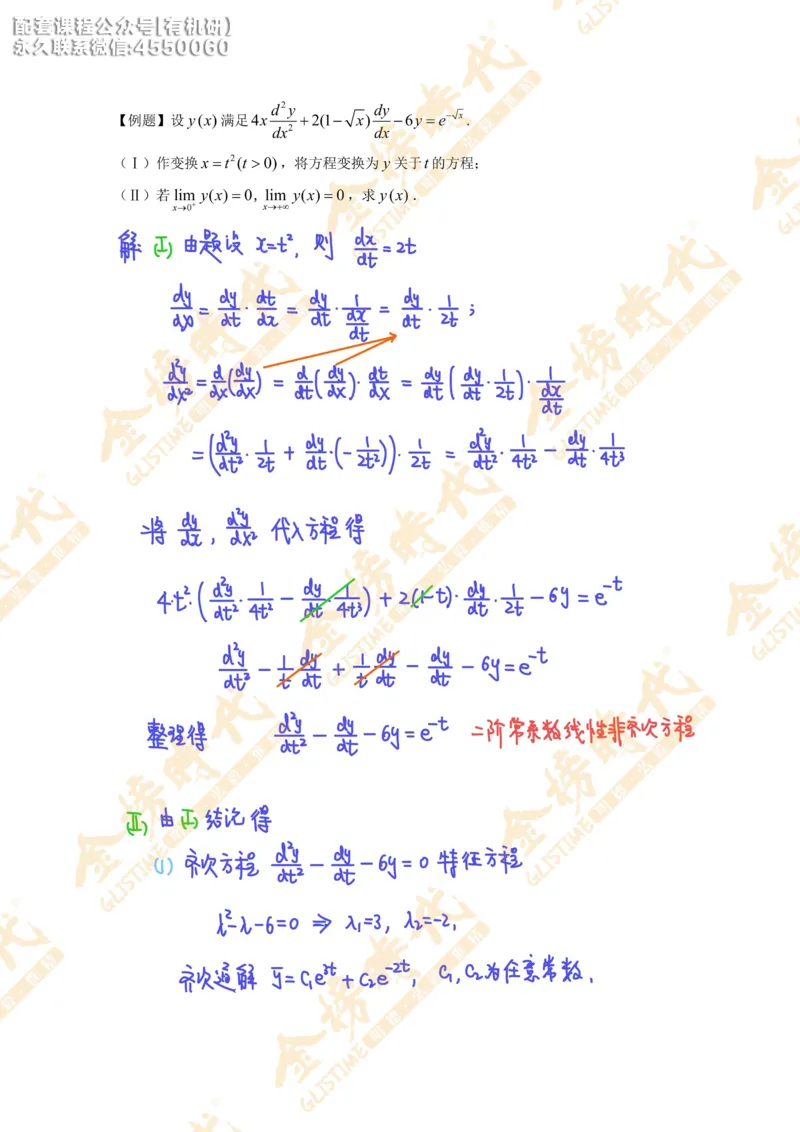 配套课程公众号[有机研]
永久联系微信:4550060
【例题】设 y(x) 满足 4x d²y/dx² + 2(1−√x) dy/dx − 6y = e^(−√x).
(Ⅰ)作变换 x = t² (t > 0), 将方程变换为 y 关于 t 的方程;
(Ⅱ)若 lim_{x→0⁺} y(x) = 0, lim_{x→+∞} y(x) = 0, 求 y(x).
解 (I) 由题设 x=t², 则 dx/dt = 2t
dy/dx = dy/dt · dt/dx = dy/dt · 1/(dx/dt) = dy/dt · 1/2t ;
d²y/dx² = d/dx(dy/dx) = d/dt(dy/dx) · dt/dx = dy/dt(dy/dt · 1/2t) · 1/(dx/dt)
= (d²y/dt² · 1/2t + dy/dt · (−1/2t²)) · 1/2t = d²y/dt² · 1/4t² − dy/dt · 1/4t³
将 dy/dx , d²y/dx² 代入方程得
4·t² · (d²y/dt² · 1/4t² − dy/dt · 1/4t³) + 2(1−t) · dy/dt · 1/2t − 6y = e^(−t)
d²y/dt² − 1/t dy/dt + 1/t dy/dt − dy/dt − 6y = e^(−t)
整理得 d²y/dt² − dy/dt − 6y = e^(−t) 二阶常系数线性非齐次方程
(II) 由(I)结论得
(1) 齐次方程 d²y/dt² − dy/dt − 6y = 0 特征方程
λ²−λ−6=0 ⇒ λ₁=3, λ₂=−2,
齐次通解 ȳ = C₁e^(3t) + C₂e^(−2t), C₁, C₂为任意常数.
金榜時代
GLISTIME